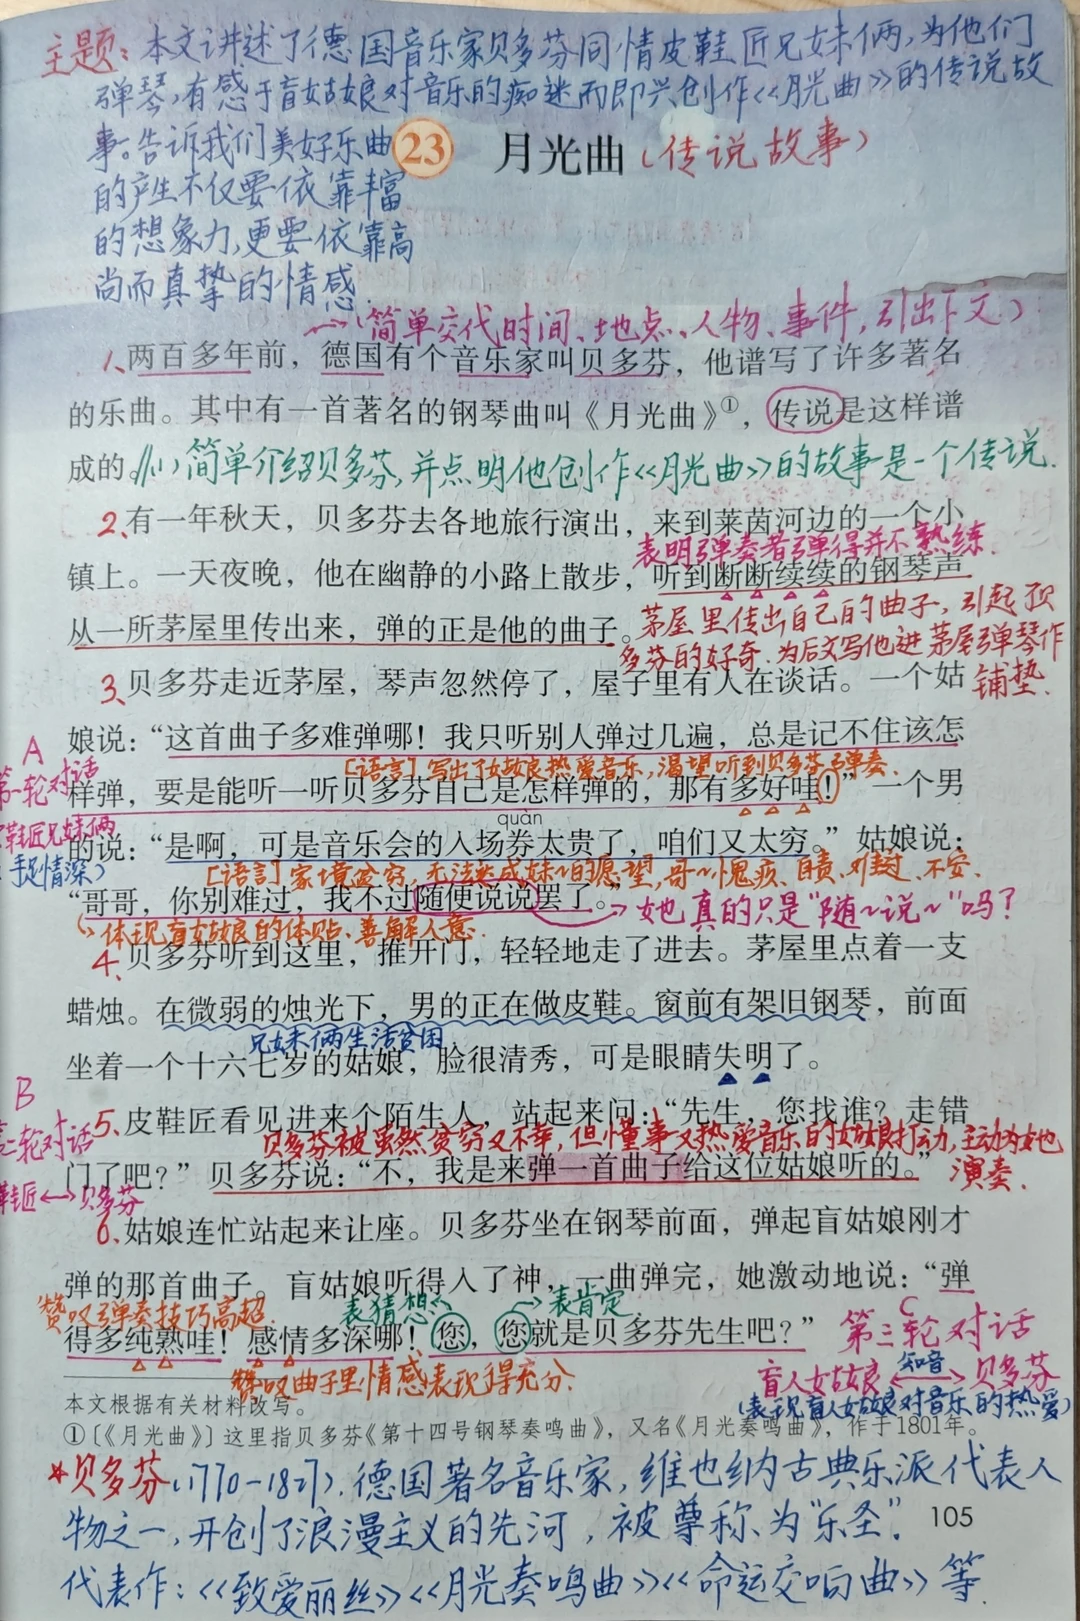 主题：本文讲述了德国音乐家贝多芬同情皮鞋匠兄妹俩，为他们
弹琴，有感于盲姑娘对音乐的痴迷而即兴创作《月光曲》的传说故
事。告诉我们美好乐曲
的产生不仅要依靠丰富
的想象力，更要依靠高
尚而真挚的情感.
23 月光曲（传说故事）
（简单交代时间、地点、人物、事件，引出下文.）
1、两百多年前，德国有个音乐家叫贝多芬，他谱写了许多著名
的乐曲。其中有一首著名的钢琴曲叫《月光曲》①，传说是这样谱
成的。//(1)简单介绍贝多芬，并点明他创作《月光曲》的故事是一个传说.
2、有一年秋天，贝多芬去各地旅行演出，来到莱茵河边的一个小
表明弹奏者弹得并不熟练.
镇上。一天夜晚，他在幽静的小路上散步，听到断断续续的钢琴声
茅屋里传出自己的曲子，引起贝
从一所茅屋里传出来，弹的正是他的曲子。
多芬的好奇.为后文写他进茅屋弹琴作
铺垫.
3、贝多芬走近茅屋，琴声忽然停了，屋子里有人在谈话。一个姑
A
第一轮对话
娘说：“这首曲子多难弹哪！我只听别人弹过几遍，总是记不住该怎
[语言]写出了姑娘热爱音乐，渴望听到贝多芬弹奏.
样弹，要是能听一听贝多芬自己是怎样弹的，那有多好哇！”一个男
quàn
鞋匠兄妹俩
手足情深）
的说：“是啊，可是音乐会的入场券太贵了，咱们又太穷。”姑娘说：
[语言]家境贫穷，无法达成妹~的愿望，哥~愧疚、自责、难过、不安.
“哥哥，你别难过，我不过随便说说罢了。”
她真的只是“随~说~”吗？
体现盲姑娘的体贴、善解人意.
4、贝多芬听到这里，推开门，轻轻地走了进去。茅屋里点着一支
蜡烛。在微弱的烛光下，男的正在做皮鞋。窗前有架旧钢琴，前面
兄妹俩生活贫困
坐着一个十六七岁的姑娘，脸很清秀，可是眼睛失明了。
B
二轮对话
鞋匠↔贝多芬
5、皮鞋匠看见进来个陌生人，站起来问：“先生，您找谁？走错
贝多芬被虽然贫穷又不幸，但懂事又热爱音乐的姑娘打动，主动为她
演奏.
门了吧？”贝多芬说：“不，我是来弹一首曲子给这位姑娘听的。”
6、姑娘连忙站起来让座。贝多芬坐在钢琴前面，弹起盲姑娘刚才
弹的那首曲子。盲姑娘听得入了神，一曲弹完，她激动地说：“弹
赞叹弹奏技巧高超.
表猜想
表肯定
得多纯熟哇！感情多深哪！您，您就是贝多芬先生吧？”
C
第三轮对话
赞叹曲子里情感表现得充分.
盲人女姑娘 知音 贝多芬
（表现盲人姑娘对音乐的热爱）
本文根据有关材料改写。
①〔《月光曲》〕这里指贝多芬《第十四号钢琴奏鸣曲》，又名《月光奏鸣曲》，作于1801年。
*贝多芬（1770-1827）.德国著名音乐家，维也纳古典乐派代表人
物之一，开创了浪漫主义的先河，被尊称为“乐圣”.
105
代表作：《致爱丽丝》《月光奏鸣曲》《命运交响曲》等.